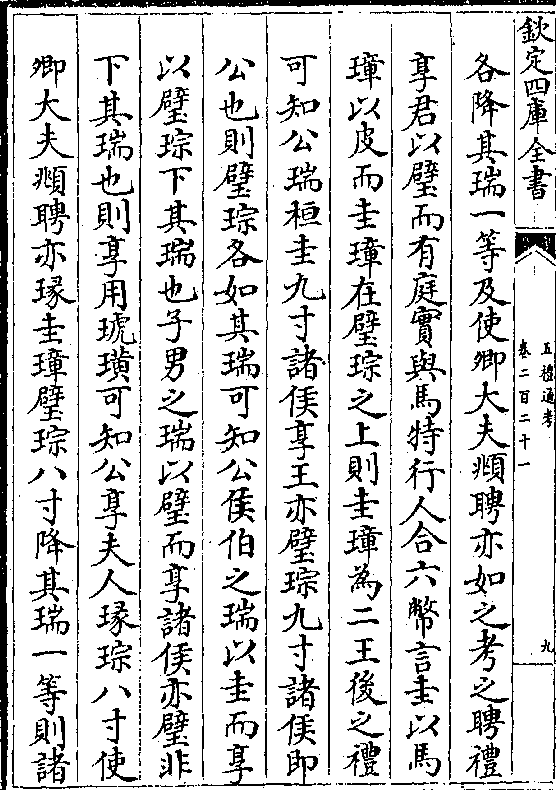 欽定四庫全書
五禮通考
卷二百二十一
九
各降其瑞一等及使卿大夫頫聘亦如之考之聘禮
享君以璧而有庭實與馬特行人合六幣言圭以馬
璋以皮而圭璋在璧琮之上則圭璋為二王後之禮
可知公瑞桓圭九寸諸侯享王亦璧琮九寸諸侯即
公也則璧琮各如其瑞可知公侯伯之瑞以圭而享
以璧琮下其瑞也子男之瑞以璧而享諸侯亦璧非
下其瑞也則享用琥璜可知公享夫人瑑琮八寸使
卿大夫頫聘亦瑑圭璋璧琮八寸降其瑞一等則諸